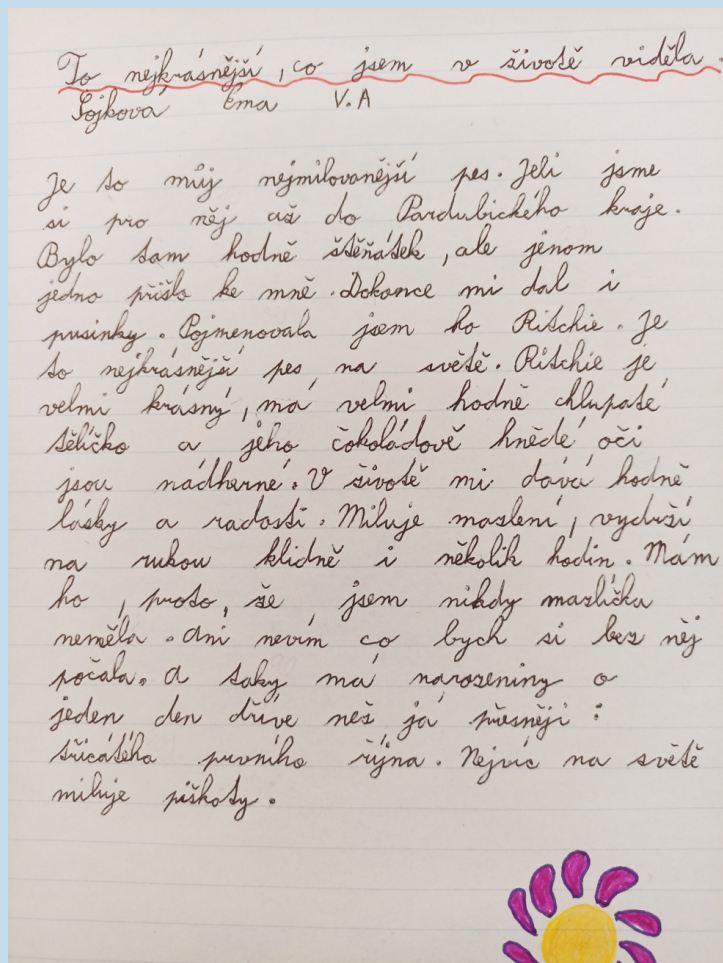 To nejkrásnější, co jsem v životě viděla.
Sojková Ema V.A
Je to můj nejmilovanější pes. Jeli jsme
si pro něj až do Pardubického kraje.
Bylo tam hodně štěňátek, ale jenom
jedno přišlo ke mně. Dokonce mi dal i
pusinky. Pojmenovala jsem ho Ritchie. Je
to nejkrásnější pes na světě. Ritchie je
velmi krásný, má velmi hodně chlupaté
tělíčko a jeho čokoládově hnědé oči
jsou nádherné. V životě mi dává hodně
lásky a radosti. Miluje mazlení, vydrží
na rukou klidně i několik hodin. Mám
ho, proto, že jsem nikdy mazlíčka
neměla. Ani nevím co bych si bez něj
počala. A taky má narozeniny o
jeden den dříve než já přesněji:
třicátého prvního října. Nejvíc na světě
miluje piškoty.